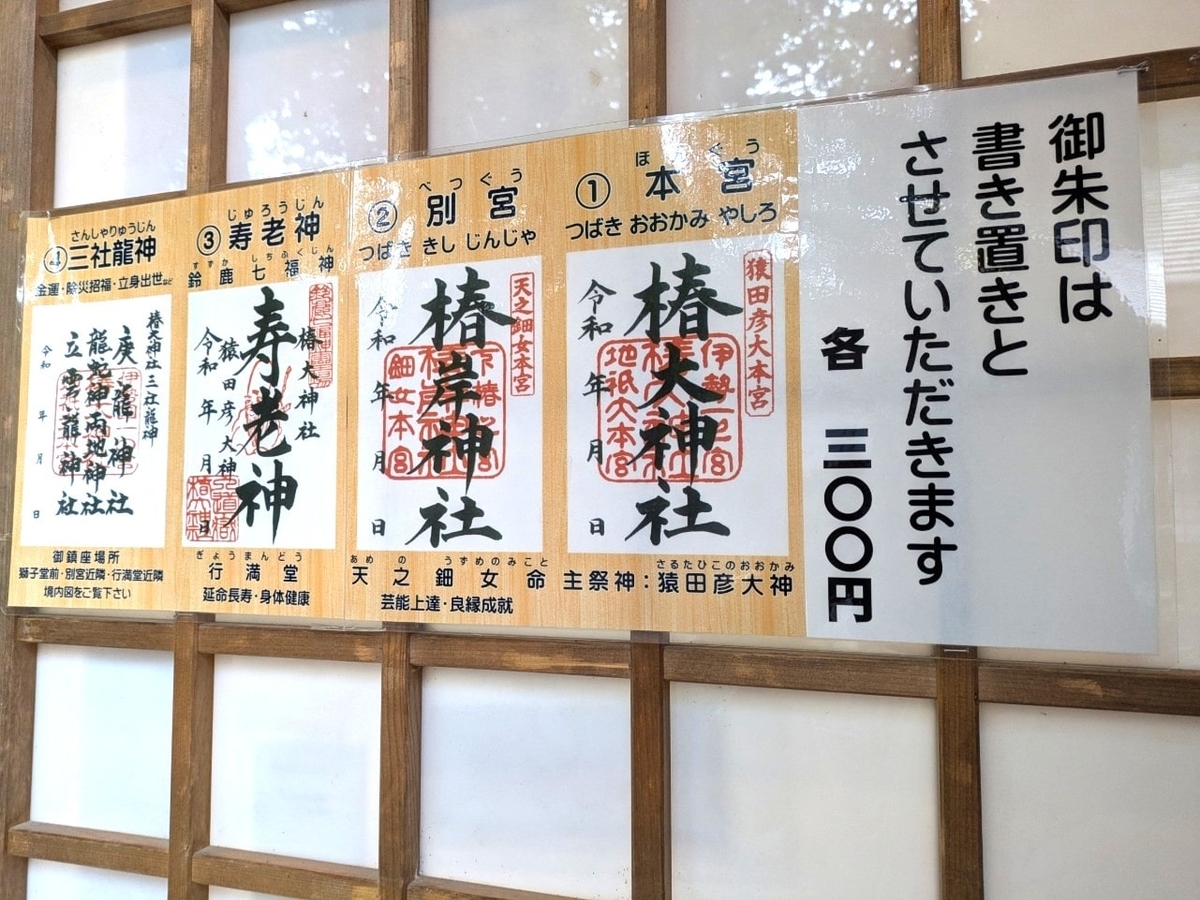 御朱印は
書き置きと
させていただきます
各 三〇〇円
ほんぐう
①本宮
つばき おおかみ やしろ
猿田彦大本宮
椿大神社
伊勢一之宮
地祇大本宮
令和 年 月 日
さるたひこのおおかみ
主祭神：猿田彦大神
べつぐう
②別宮
つばき きし じんじゃ
天之鈿女本宮
椿岸神社
鈿女本宮
令和 年 月 日
あめ の うずめのみこと
天之鈿女命
芸能上達・良縁成就
じゅろうじん
③寿老神
すずか しちふくじん
鈴鹿七福神
椿大神社
寿老神
猿田彦大神
令和 年 月 日
ぎょうまんどう
行満堂
延命長寿・身体健康
さんしゃりゅうじん
④三社龍神
金運・除災招福・立身出世など
椿大神社 三社龍神
庚龍神社
龍蛇神両地神社
立雲龍神社
令和 年 月 日
御鎮座場所
獅子堂前・別宮近隣・行満堂近隣
境内図をご覧下さい